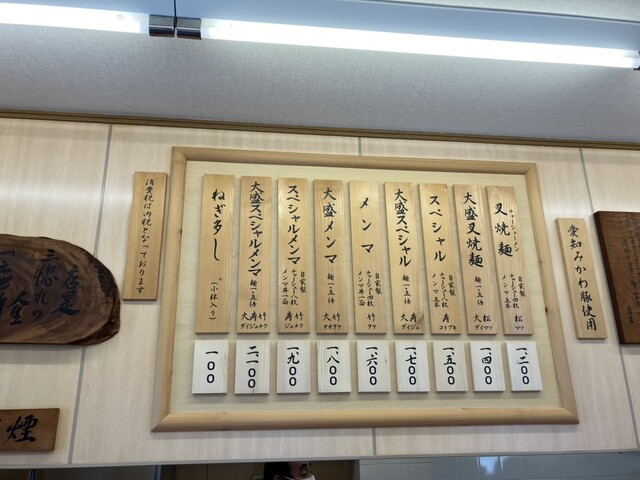 愛知みかわ豚使用
チャーシューメン
叉焼麺
松
マツ
一、二〇〇
大盛叉焼麺
麺一・五倍
大松
ダイマツ
一、四〇〇
スペシャル
自家製
チャーシュー八枚
メンマ五本
寿
コトブキ
一、五〇〇
大盛スペシャル
麺一・五倍
大寿
ダイジュ
一、七〇〇
メンマ
自家製
チャーシュー四枚
メンマ丼一面
竹
タケ
一、六〇〇
大盛メンマ
麺一・五倍
大竹
オオタケ
一、八〇〇
スペシャルメンマ
自家製
チャーシュー八枚
メンマ丼一面
寿竹
ジュチク
一、九〇〇
大盛スペシャルメンマ
麺一・五倍
大寿竹
ダイジュチク
二、一〇〇
ねぎ多し
(小鉢入り)
一〇〇
消費税は内税となっております
店是
三惚れの
煙